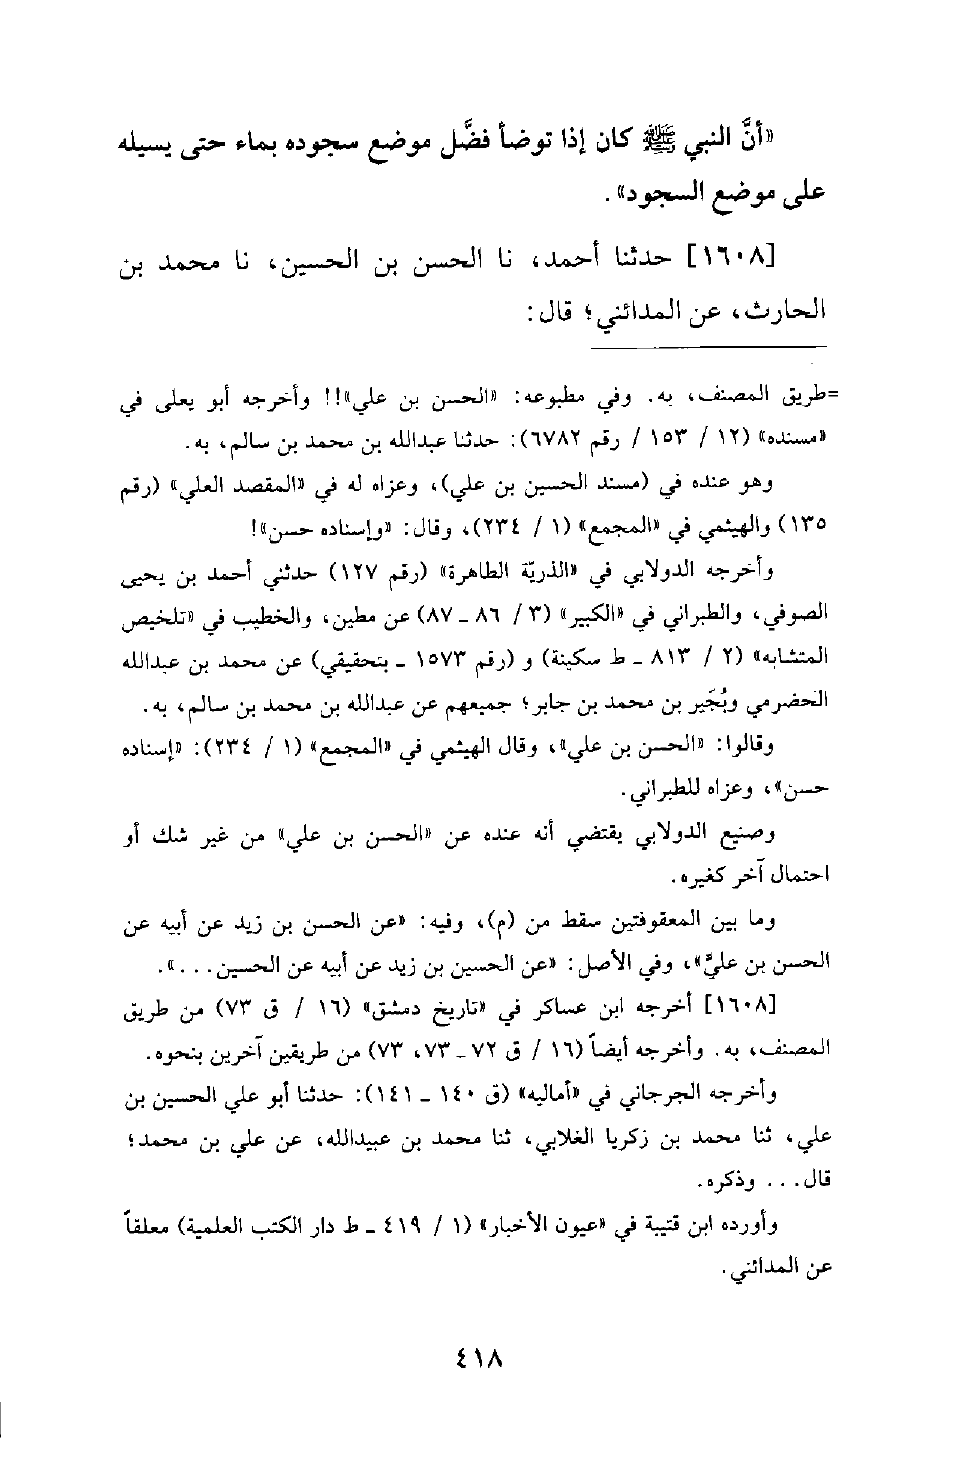 «أنَّ النبي ﷺ كان إذا توضأ فضَّل موضع سجوده بماء حتى يسيله
على موضع السجود».
[١٦٠٨] حدثنا أحمد، نا الحسن بن الحسين، نا محمد بن
الحارث، عن المدائني؛ قال:
=طريق المصنف، به. وفي مطبوعه: «الحسن بن علي»!! وأخرجه أبو يعلى في
«مسنده» (١٢ / ١٥٣ / رقم ٦٧٨٢): حدثنا عبدالله بن محمد بن سالم، به.
وهو عنده في (مسند الحسين بن علي)، وعزاه له في «المقصد العلي» (رقم
١٣٥) والهيثمي في «المجمع» (١ / ٢٣٤)، وقال: «وإسناده حسن»!
وأخرجه الدولابي في «الذريّة الطاهرة» (رقم ١٢٧) حدثني أحمد بن يحيى
الصوفي، والطبراني في «الكبير» (٣ / ٨٦ ـ ٨٧) عن مطين، والخطيب في «تلخيص
المتشابه» (٢ / ٨١٣ ـ ط سكينة) و (رقم ١٥٧٣ ـ بتحقيقي) عن محمد بن عبدالله
الحضرمي وبُجَير بن محمد بن جابر؛ جميعهم عن عبدالله بن محمد بن سالم، به.
وقالوا: «الحسن بن علي»، وقال الهيثمي في «المجمع» (١ / ٢٣٤): «إسناده
حسن»، وعزاه للطبراني.
وصنيع الدولابي يقتضي أنه عنده عن «الحسن بن علي» من غير شك أو
احتمال آخر كغيره.
وما بين المعقوفتين سقط من (م)، وفيه: «عن الحسن بن زيد عن أبيه عن
الحسن بن عليّ»، وفي الأصل: «عن الحسين بن زيد عن أبيه عن الحسين...».
[١٦٠٨] أخرجه ابن عساكر في «تاريخ دمشق» (١٦ / ق ٧٣) من طريق
المصنف، به. وأخرجه أيضاً (١٦ / ق ٧٢ ـ ٧٣، ٧٣) من طريقين آخرين بنحوه.
وأخرجه الجرجاني في «أماليه» (ق ١٤٠ ـ ١٤١): حدثنا أبو علي الحسين بن
علي، ثنا محمد بن زكريا الغلابي، ثنا محمد بن عبيدالله، عن علي بن محمد؛
قال... وذكره.
وأورده ابن قتيبة في «عيون الأخبار» (١ / ٤١٩ ـ ط دار الكتب العلمية) معلقاً
عن المدائني.
٤١٨